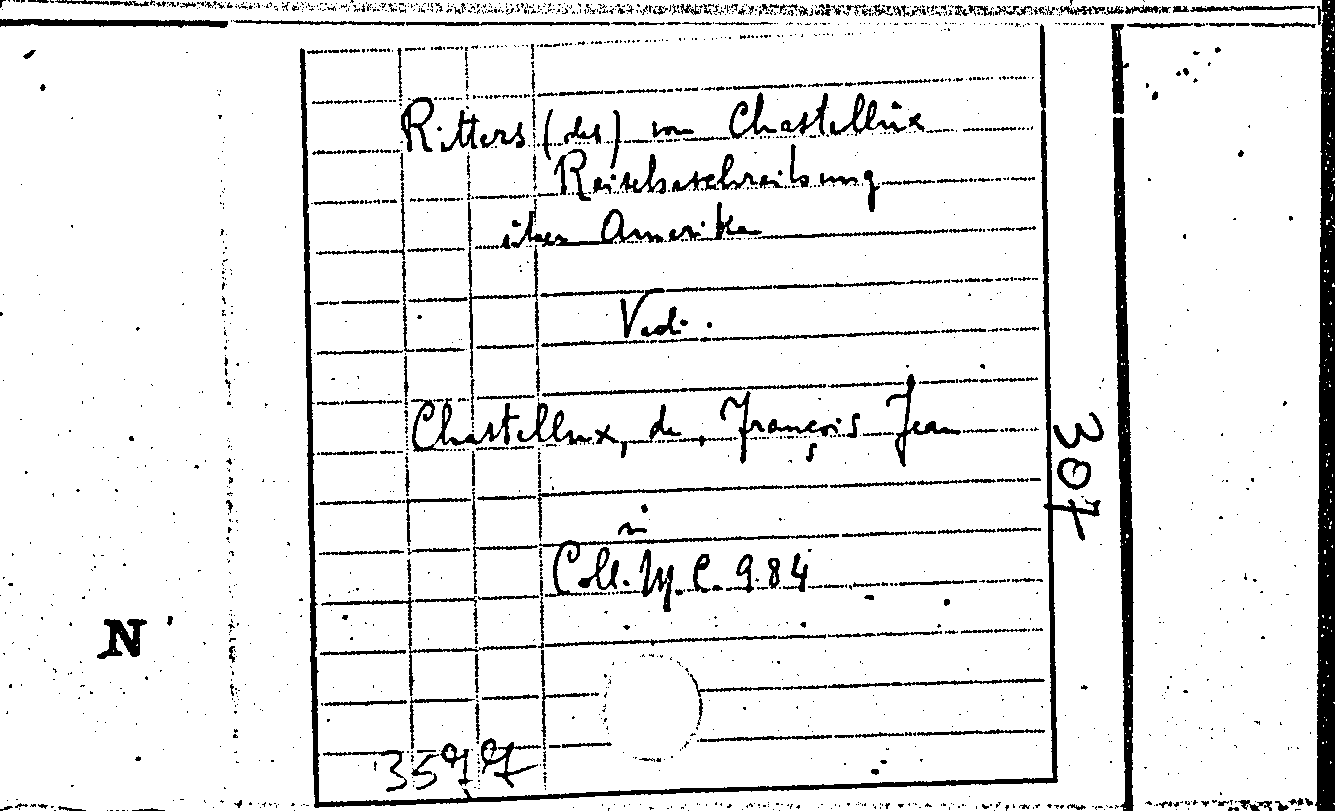 Ritters (des) von Chastellux
Reisebeschreibung
über Amerika
Vedi.
Chastellux, de, François Jean
in
Coll. M. C. 984
307
N
3577